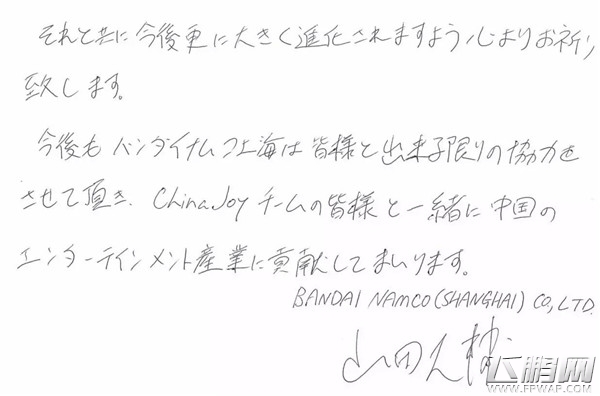 それと共に今後更に大きく進化されますよう心よりお祈り
致します。
今後もバンダイナムコ上海は皆様と出来る限りの協力を
させて頂き、ChinaJoyチームの皆様と一緒に中国の
エンターテインメント産業に貢献してまいります。
BANDAI NAMCO (SHANGHAI) CO., LTD.
山田
飞鹏网
WWW.FPWAP.COM